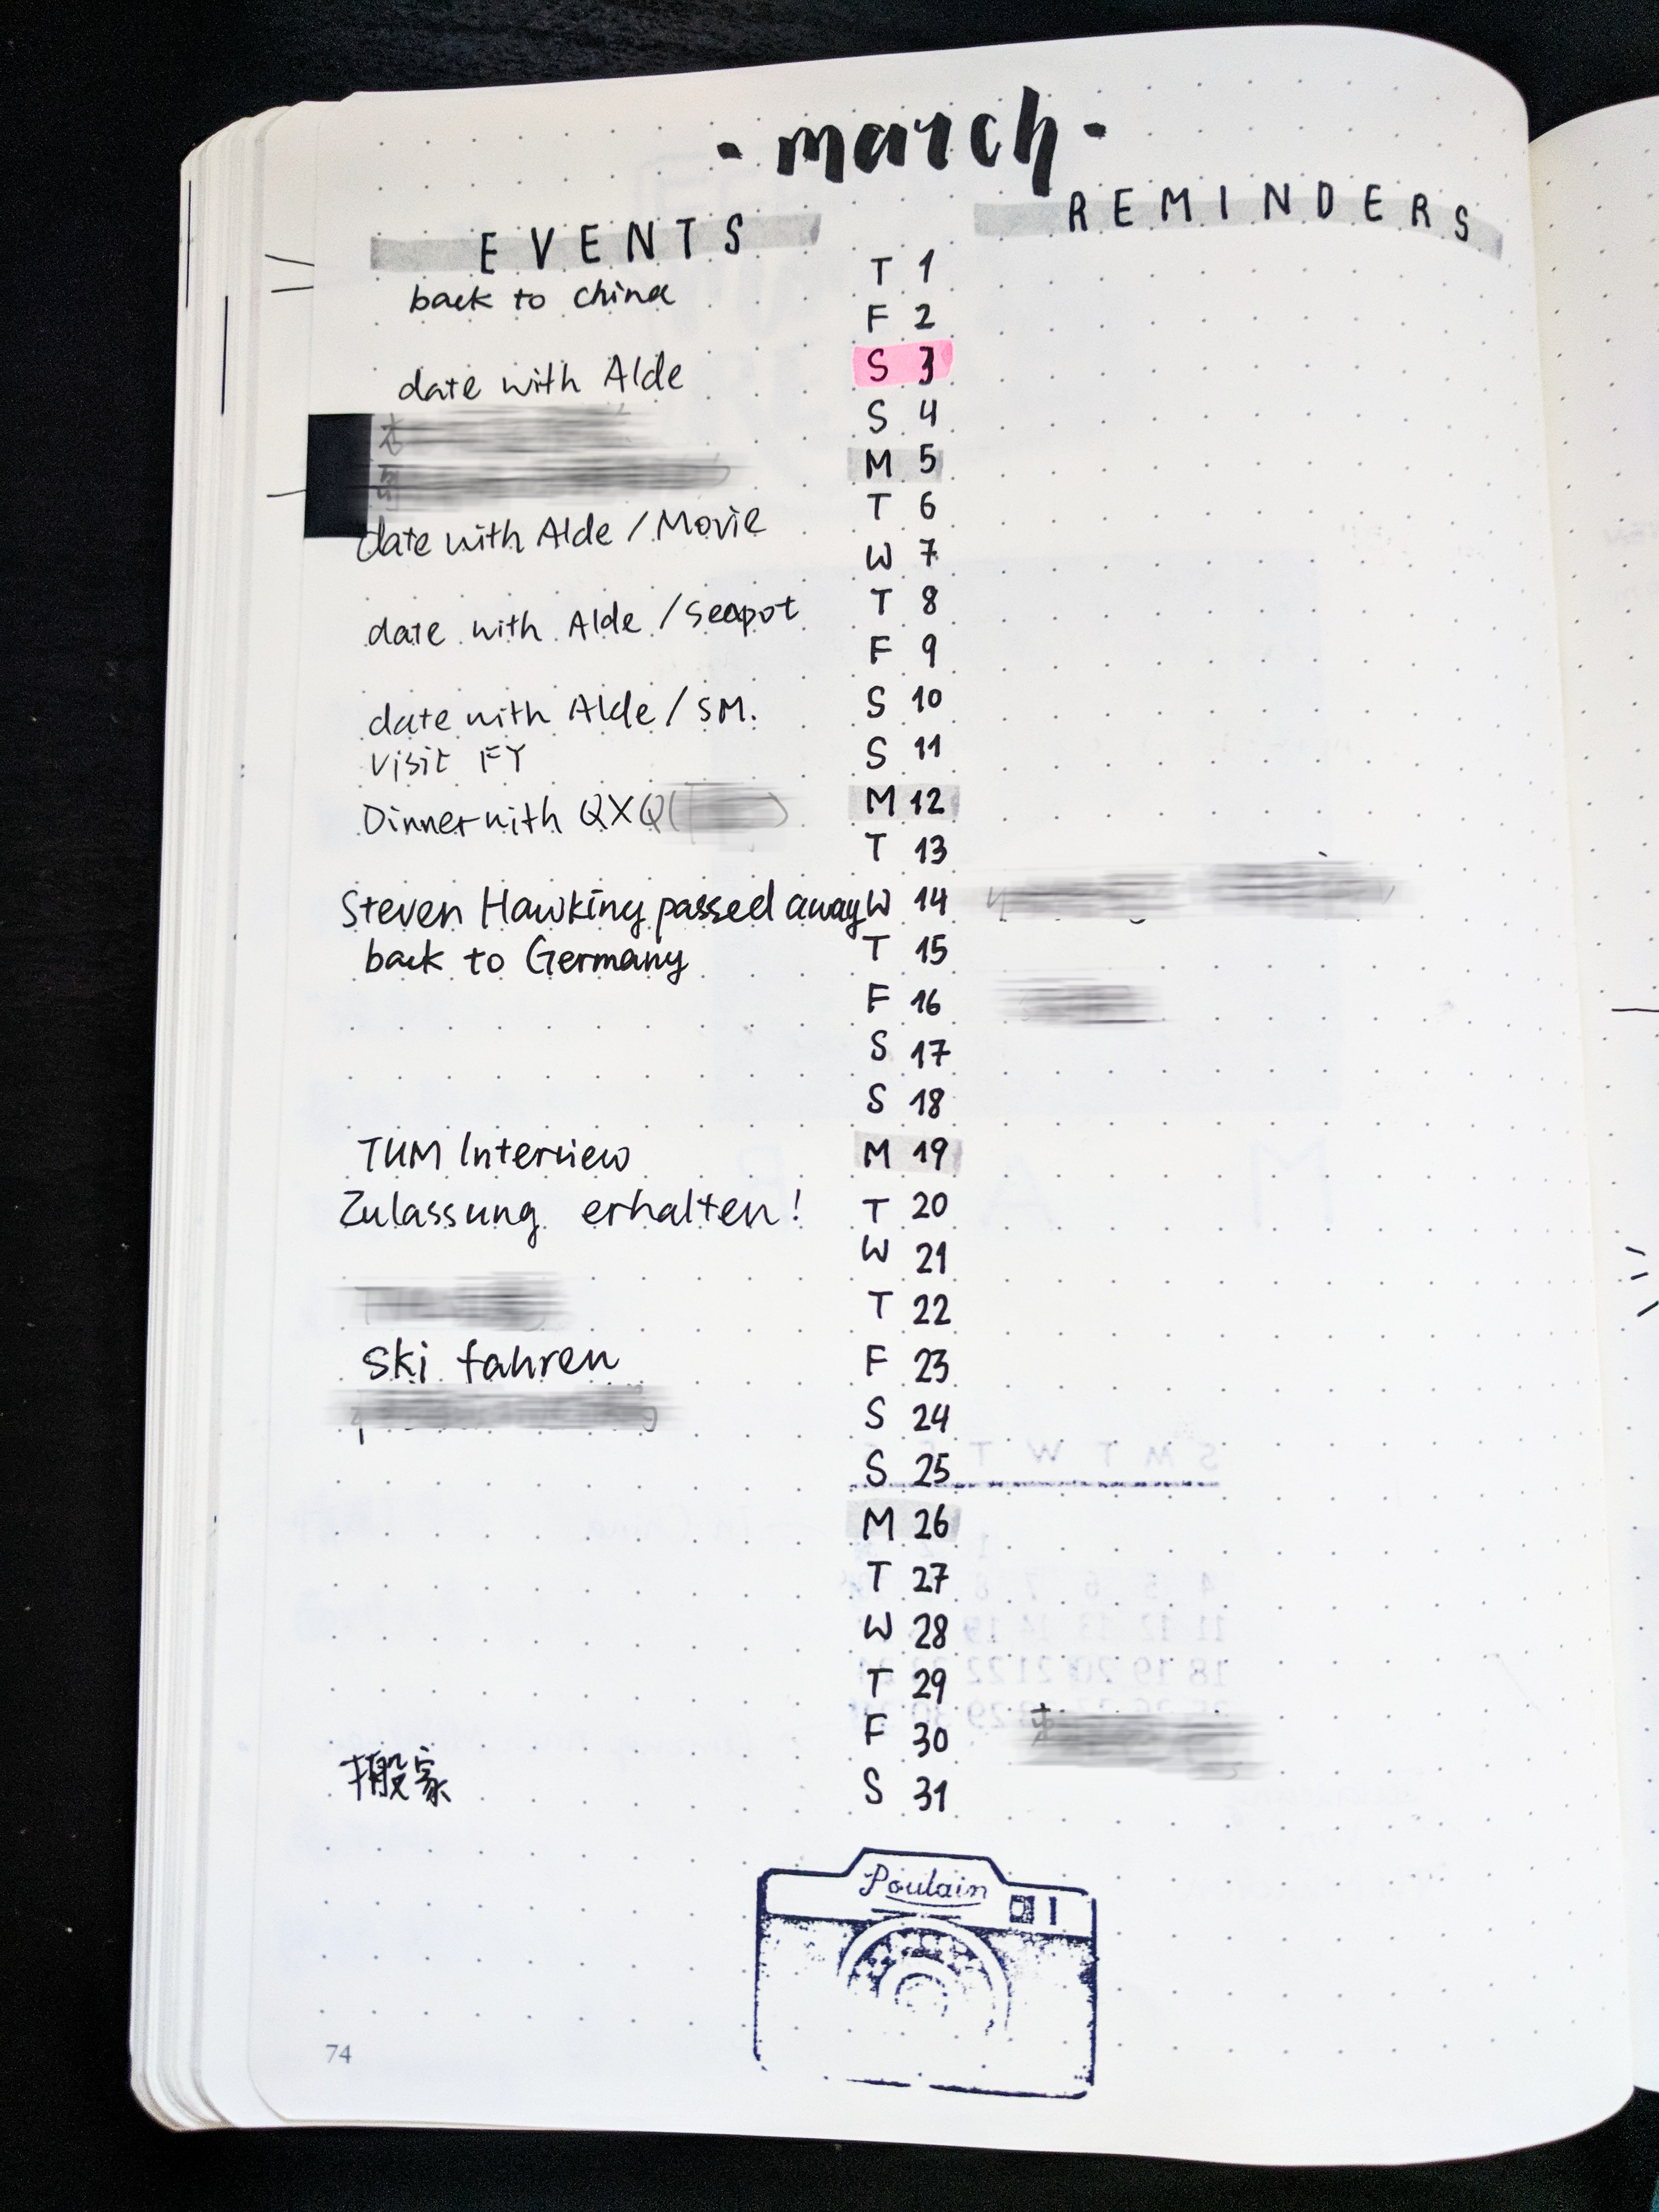 - march -
EVENTS
REMINDERS
T 1
back to china
F 2
S 3
date with Alde
S 4
M 5
T 6
date with Alde / Movie
W 7
T 8
date with Alde / Seapot
F 9
date with Alde / SM.
S 10
visit FY
S 11
Dinner with QXQ(
M 12
T 13
Steven Hawking passed away
W 14
back to Germany
T 15
F 16
S 17
S 18
TUM Interview
M 19
Zulassung erhalten!
T 20
W 21
T 22
Ski fahren
F 23
S 24
S 25
M 26
T 27
W 28
T 29
F 30
搬家
S 31
Poulain
74